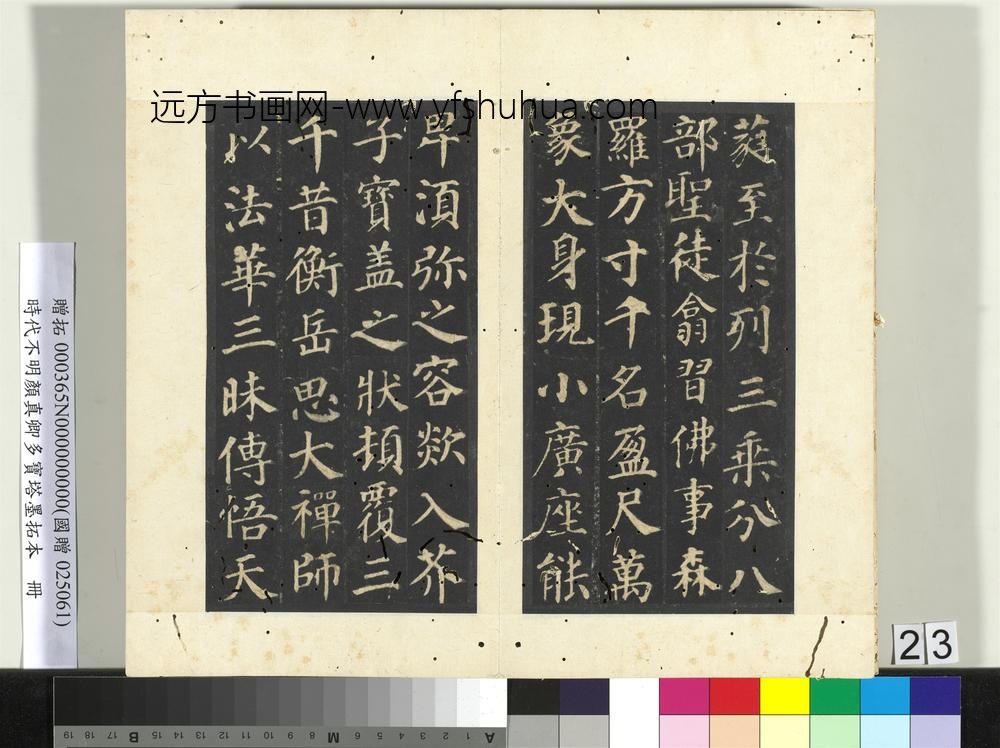 远方书画网-www.yfshuhua.com
蕤至於列三乘分八
部聖徒翕習佛事森
羅方寸千名盈尺萬
象大身現小廣座能
卑湏弥之容欻入芥
子寶盖之狀頓覆三
千昔衡岳思大禪師
以法華三昧傳悟天
贈拓 000365N000000000(國贈 025061)
時代不明顏真卿多寶塔墨拓本 冊
23
A 1 2 3 4 5 6 M 8 9 10 11 12 13 14 15 B 17 18 19